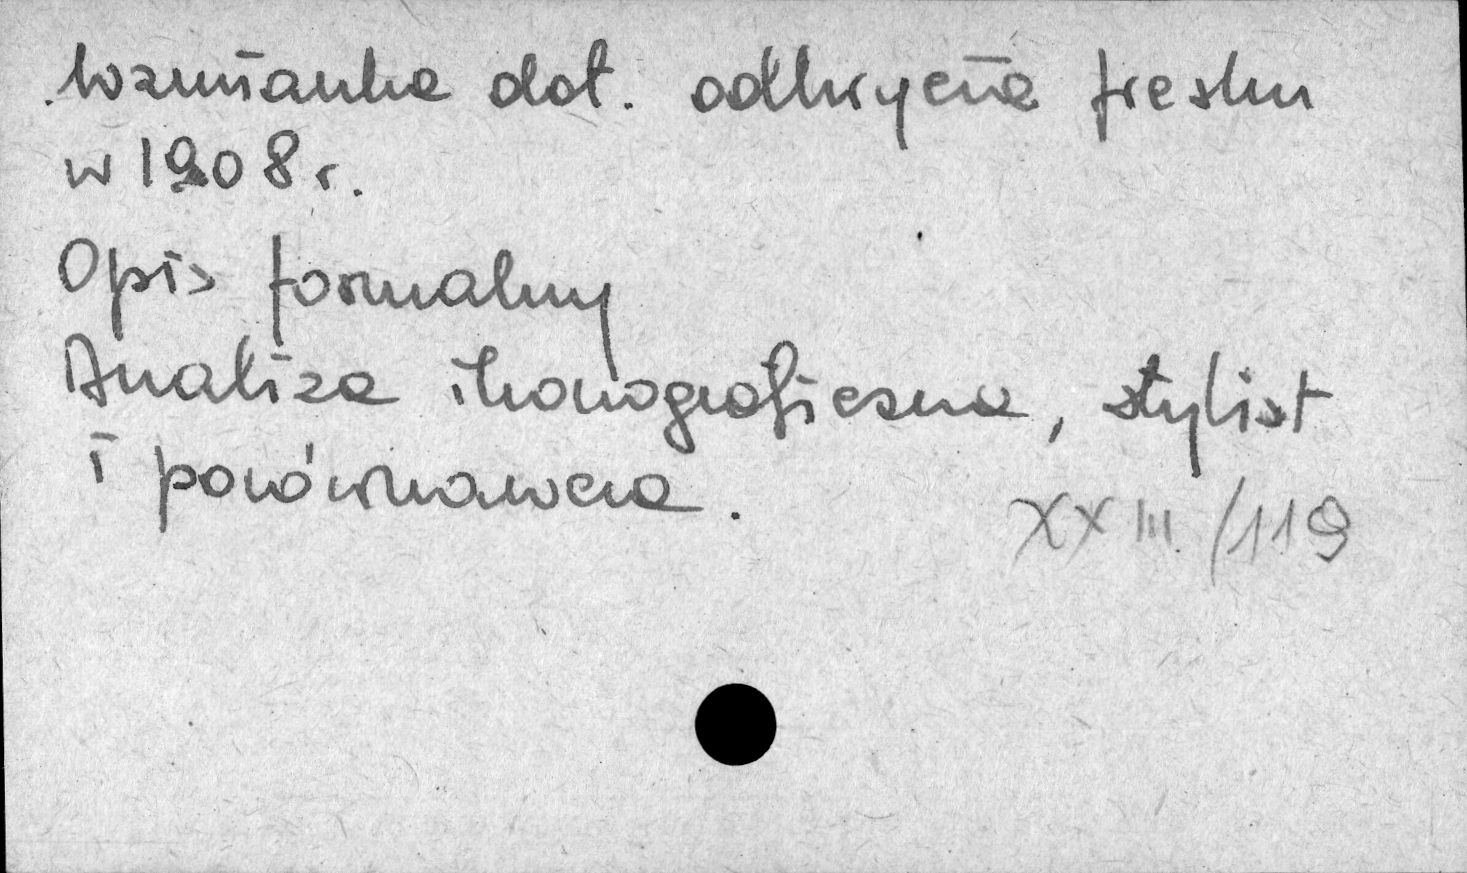 Wzmianka dot. odkrycia fresku
w 1908 r.
Opis formalny
Analiza ikonograficzna, stylist
i porównawcza.
XXIII/119